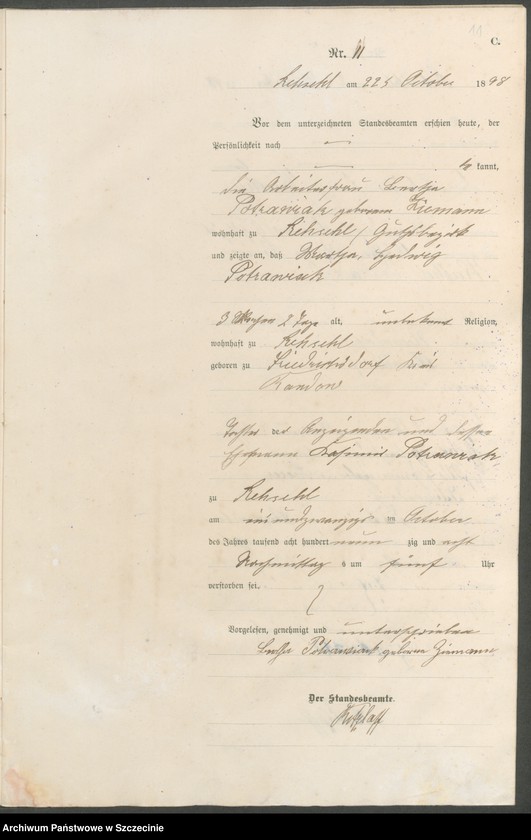 11
C.
Nr. 11
Rehsehl am 22t October 1898
Vor dem unterzeichneten Standesbeamten erschien heute, der
Persönlichkeit nach
kannt,
die Arbeiterfrau
Potrawiak geborene Ziemann
wohnhaft zu Rehsehl Gutsbezirk
und zeigte an, daß Martha, Hedwig
Potrawiak
3 Wochen 2 Tage alt, Religion,
wohnhaft zu Rehsehl
geboren zu Friedrichsdorf Kreis
Randow
Tochter der Anzeigenden und dessen
Ehemann Kasimir Potrawiak
zu Rehsehl
am ein und zwanzigs ten October
des Jahres tausend acht hundert neun zig und acht
Nachmittag s um fünf Uhr
verstorben sei.
Vorgelesen, genehmigt und unterschrieben
Potrawiak geborene Ziemann
Der Standesbeamte.
Archiwum Państwowe w Szczecinie